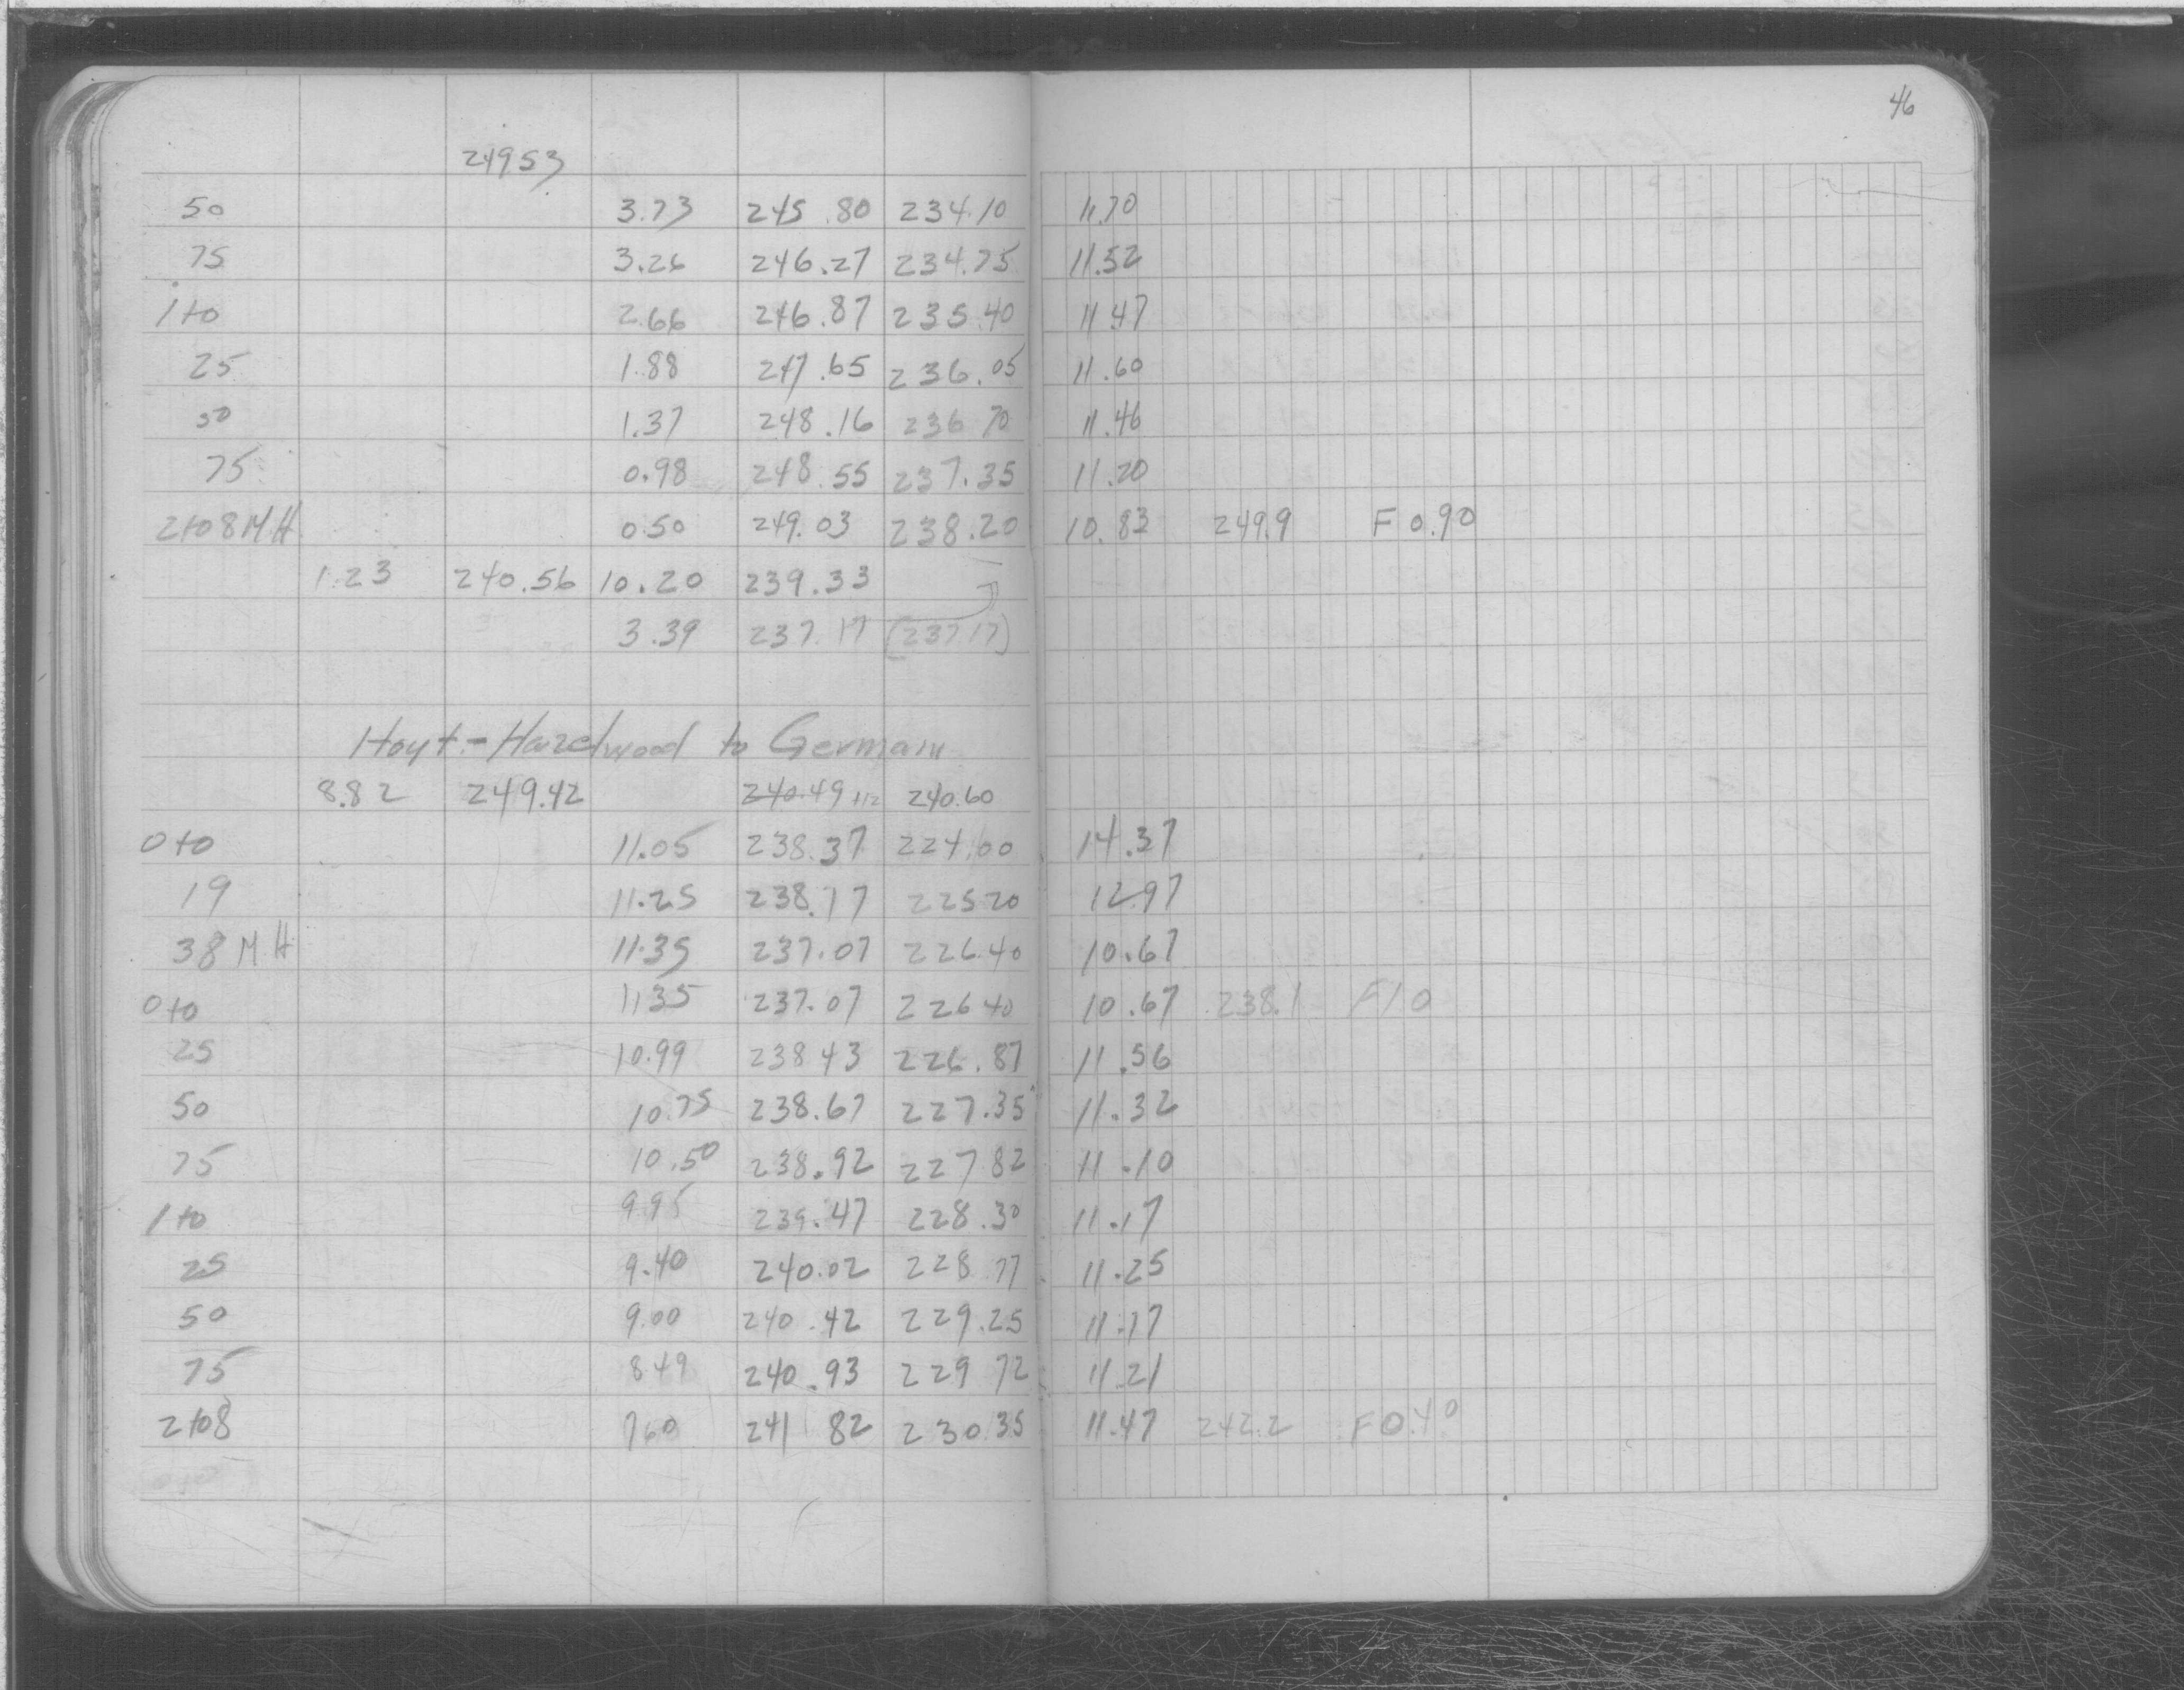 46
249.53
50 3.73 245.80 234.10 11.70
75 3.26 246.27 234.75 11.52
1+0 2.66 246.87 235.40 11.47
25 1.88 247.65 236.05 11.60
50 1.37 248.16 236 70 11.46
75 0.98 248.55 237.35 11.20
2+08 M.H. 0.50 249.03 238.20 10.83 249.9 F 0.90
1.23 240.56 10.20 239.33
3.39 237.17 (237.17)
Hoyt.- Hazelwood to Germain
8.82 249.42 240.49 +12 240.60
0+0 11.05 238.37 224.00 14.37
19 11.25 238.17 225 20 12.97
38 M.H 11.35 237.07 226.40 10.67
0+0 11 35 237.07 226 40 10.67 238.1 F 1.0
25 10.99 238 43 226.87 11.56
50 10.75 238.67 227.35 11.32
75 10.50 238.92 227 82 11.10
1+0 9.95 239.47 228.30 11.17
25 9.40 240.02 228 77 11.25
50 9.00 240.42 229.25 11.17
75 8.49 240.93 229 72 11.21
2+08 7 60 241 82 230.35 11.47 242.2 F 0.40